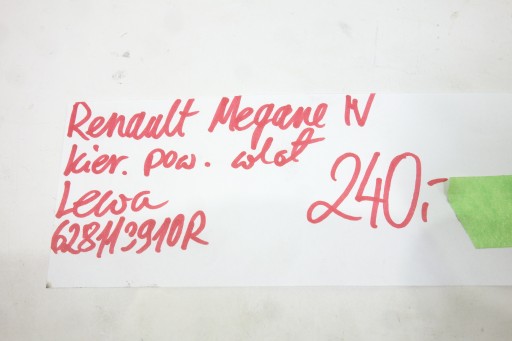 Renault Megane IV
kier. pow. wlot
Lewa
240,-
628113910R